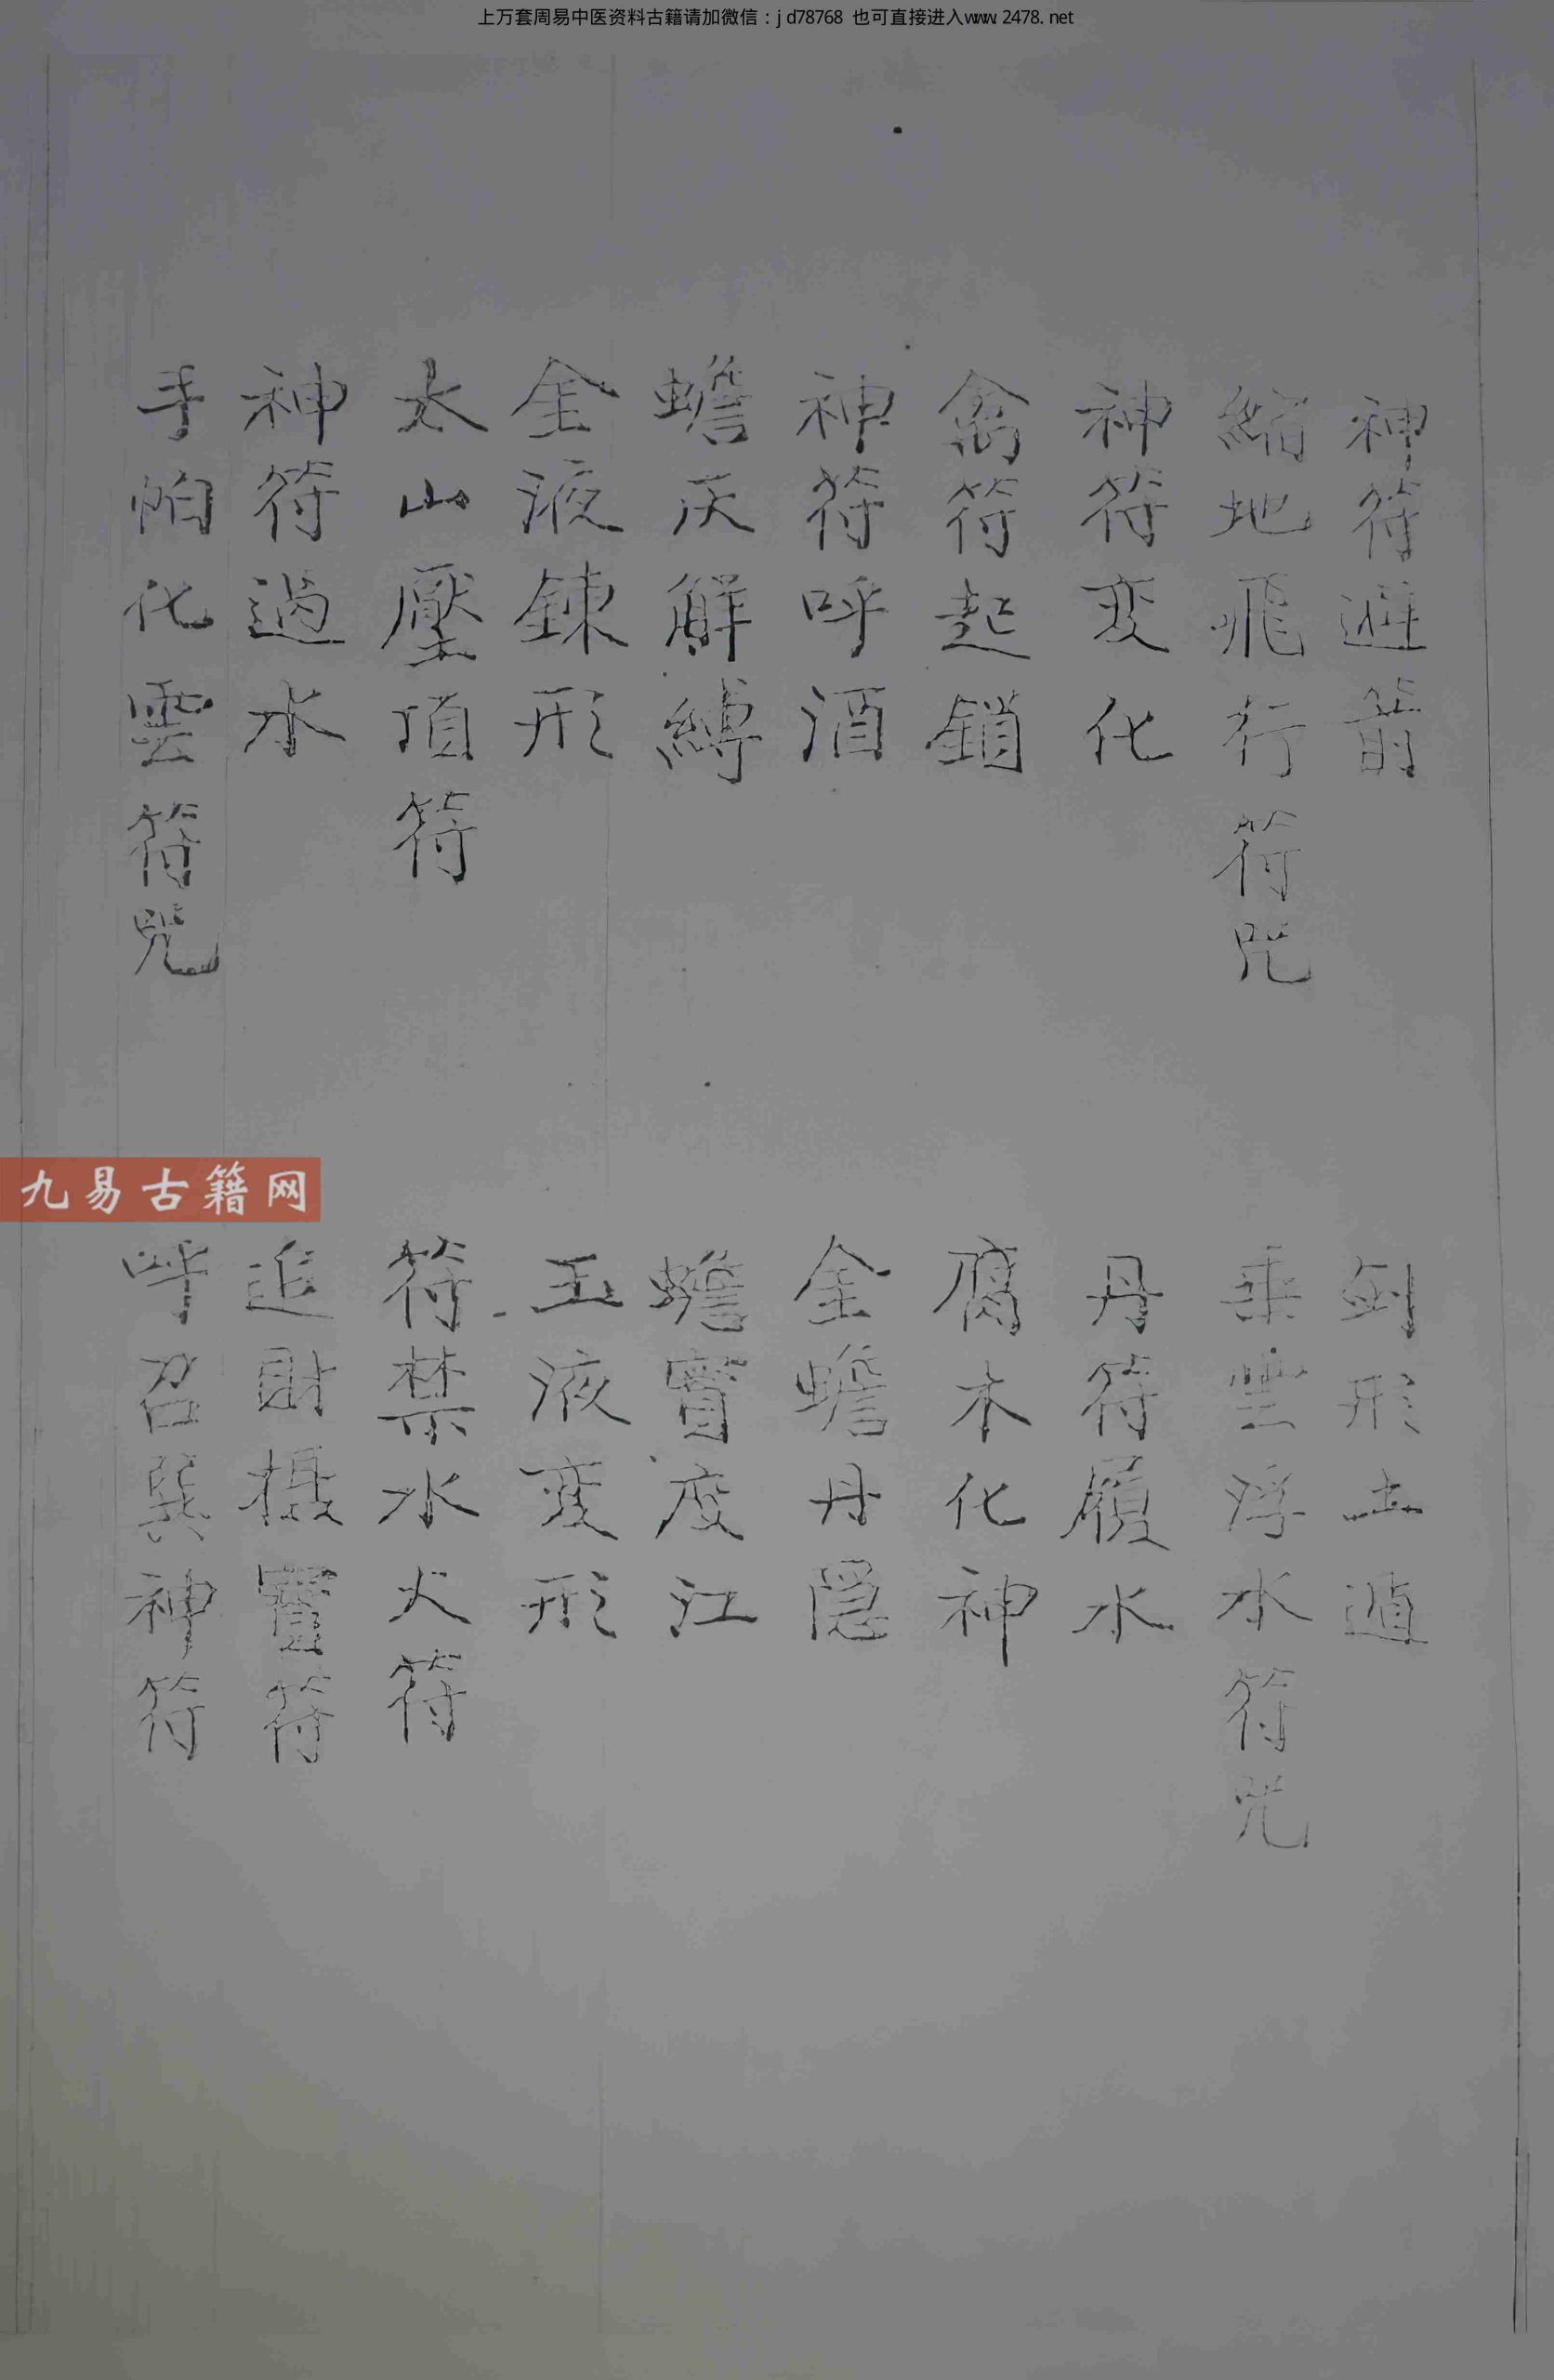 上万套周易中医资料古籍请加微信：jd78768 也可直接进入www.2478.net
神符避箭
縮地飛行符咒
神符变化
禽符起鎖
神符呼酒
蟾灰觧縛
金液鍊形
太山壓頂符
神符過水
手帕化雲符咒
九易古籍网
剑形土遁
乘雲浮水符咒
丹符履水
腐木化神
金蟾丹隱
蟾寳度江
玉液变形
符禁水火符
追財摄寳符
呼召巽神符